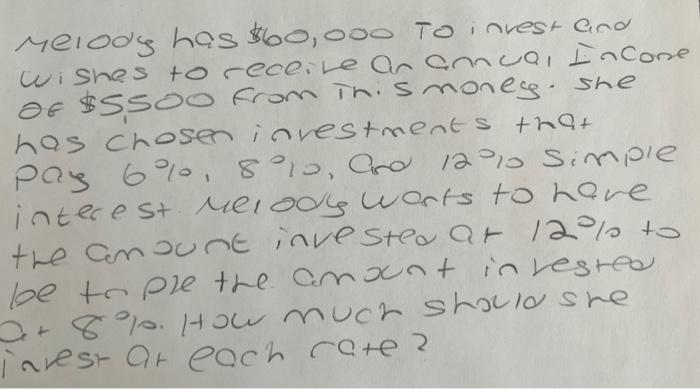 Melody has $60,000 To invest and
wishes to receive an annual Income
OF $5,500 From This money. she
has chosen investments that
pay 6%, 8%, and 12% simple
interest. Melody wants to have
the amount invested at 12% to
be triple the amount invested
at 8%. How much should she
invest at each rate?